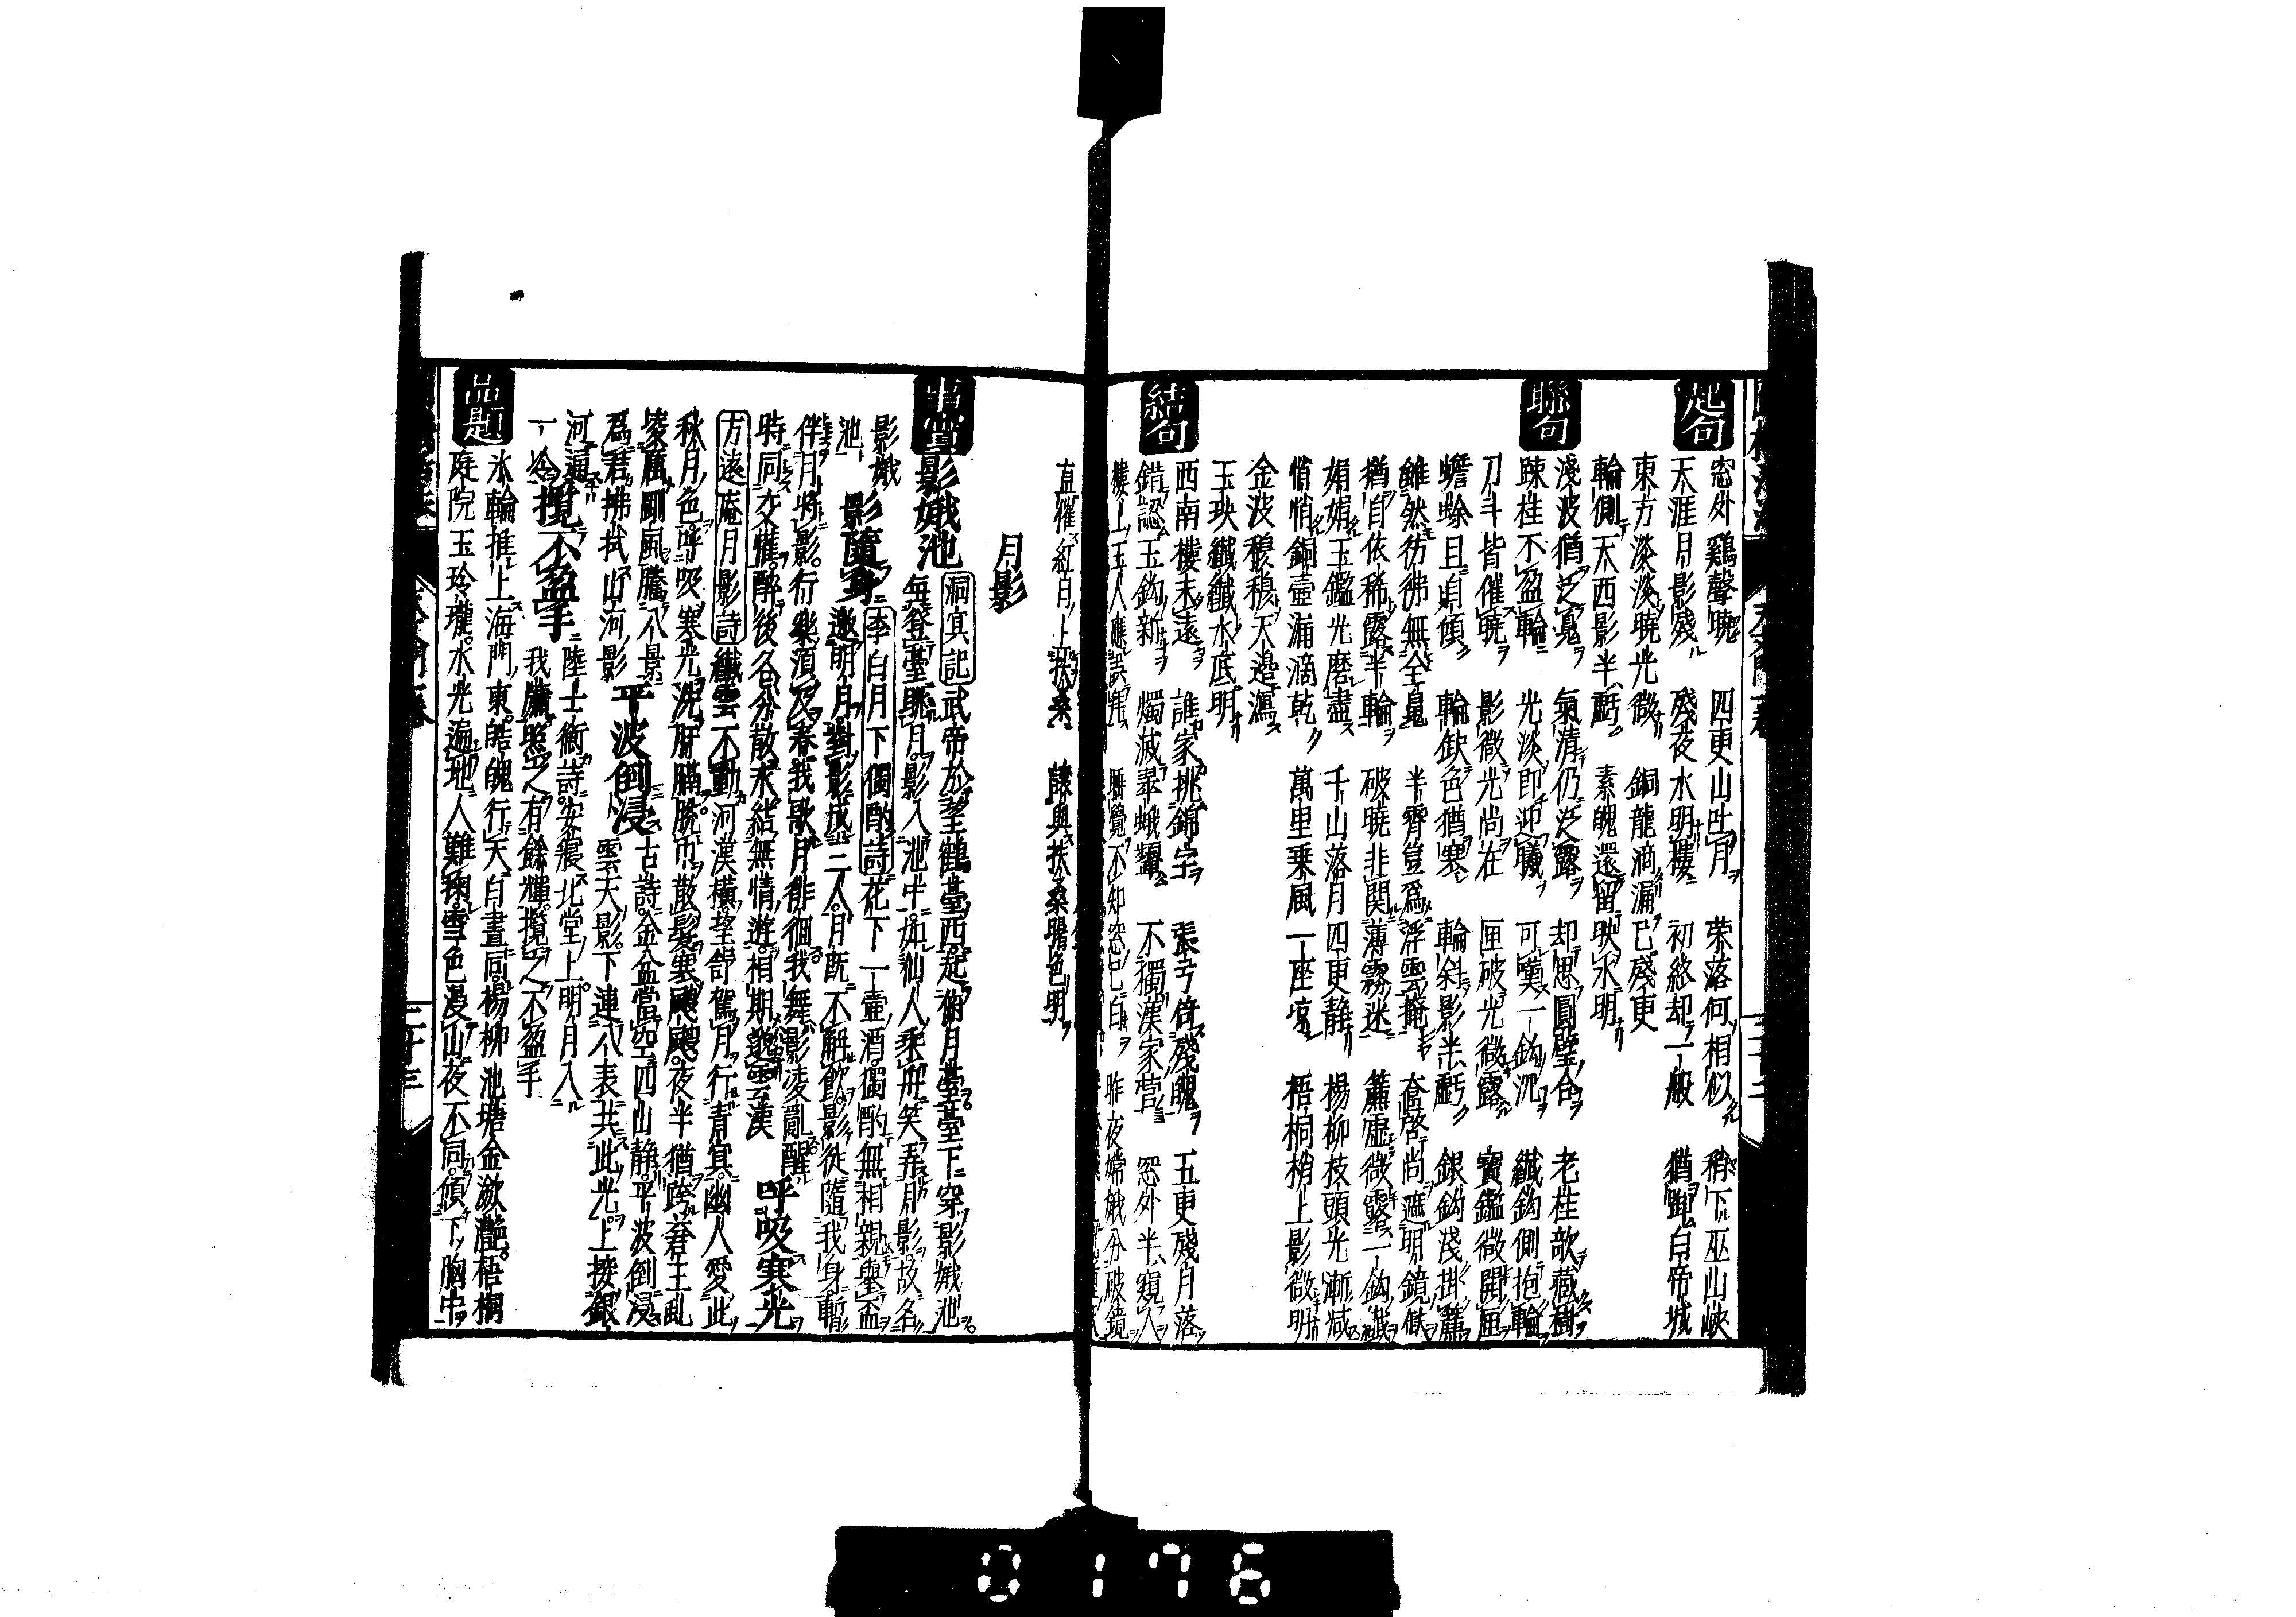 起句
窓外鷄聲曉　四更山吐月　榮落何相似　稍下巫山峽
天涯月影殘　殘夜水明樓　初終却一般　猶啣白帝城
東方淡淡曉光微　銅龍滴漏已殘更
輪側天西影半虧　素魄還留映水明
聯句
淺波猶泛寬　氣清仍泛露　却思圓璧合　老桂欹藏樹
踈桂不盈輪　光淡即迎曦　可嘆一鈎沉　纖鈎側抱輪
刀斗皆催曉　影微光尚在　匣破光微露　寶鑑微開匣
蟾蜍且自傾　輪缺色猶寒　輪斜影半虧　銀鈎淺掛簾
雖然彷彿無全鬼　半霄豈爲浮雲掩　奩啓尚遮明鏡
猶自依稀露半輪　破曉非関薄霧迷　簾虛微露一鈎纖
娟娟玉鑑光磨盡　千山落月四更静　楊柳枝頭光漸減
悄悄銅壷漏滴乾　萬里乗風一座凉　梧桐梢上影微明
金波穆穆天邉瀉
玉玦纖纖水底明
結句
西南樓未遠　誰家挑錦字　張弓待殘魄　五更殘月落
錯認玉鈎新　燭滅翠蛾顰　不獨漢家営　窓外半窺人
樓上玉人應誤　睡覺不知窓已白　昨夜嫦娥分破鏡
直催紅日上扶桒　讓與扶桑曙色明
月影
事實
影娥池
洞冥記
武帝於望鶴臺西起俯月臺臺下穿影娥池
每登臺眺月影入池中如仙人乘舟笑弄月影故名
影娥
池
影隨身
李白月下獨酌詩
花下一壷酒獨酌無相親舉盃
邀明月對影成三人月既不解飲影徒隨我身暫
伴月將影行樂須及春我歌月徘徊我舞影凌亂醒
時同交懽醉後各分散永結無情遊相期邈雲漢
呼吸寒光
方遠庵月影詩
纖雲不動河漢橫望舒駕月行青冥幽人愛此
秋月色呼吸寒光洗肝膈脫巾散髮寒颼颼夜半猶
萬剛風騰八景
爲君拂拭山河影
平波倒浸
古詩金盆當空四山静平波倒浸
雲天影下連八表共此光上接銀
河逼
一冷
攬不盈手
陸士衡詩安寢北堂上明月入
我牖照之有餘輝攬之不盈手
品題
氷輪推上海門東皓魄行天白晝同楊柳池塘金瀲灧梧桐
庭院玉玲瓏水光遍地人難掬雪色漫山夜不同傾下胸中
0176